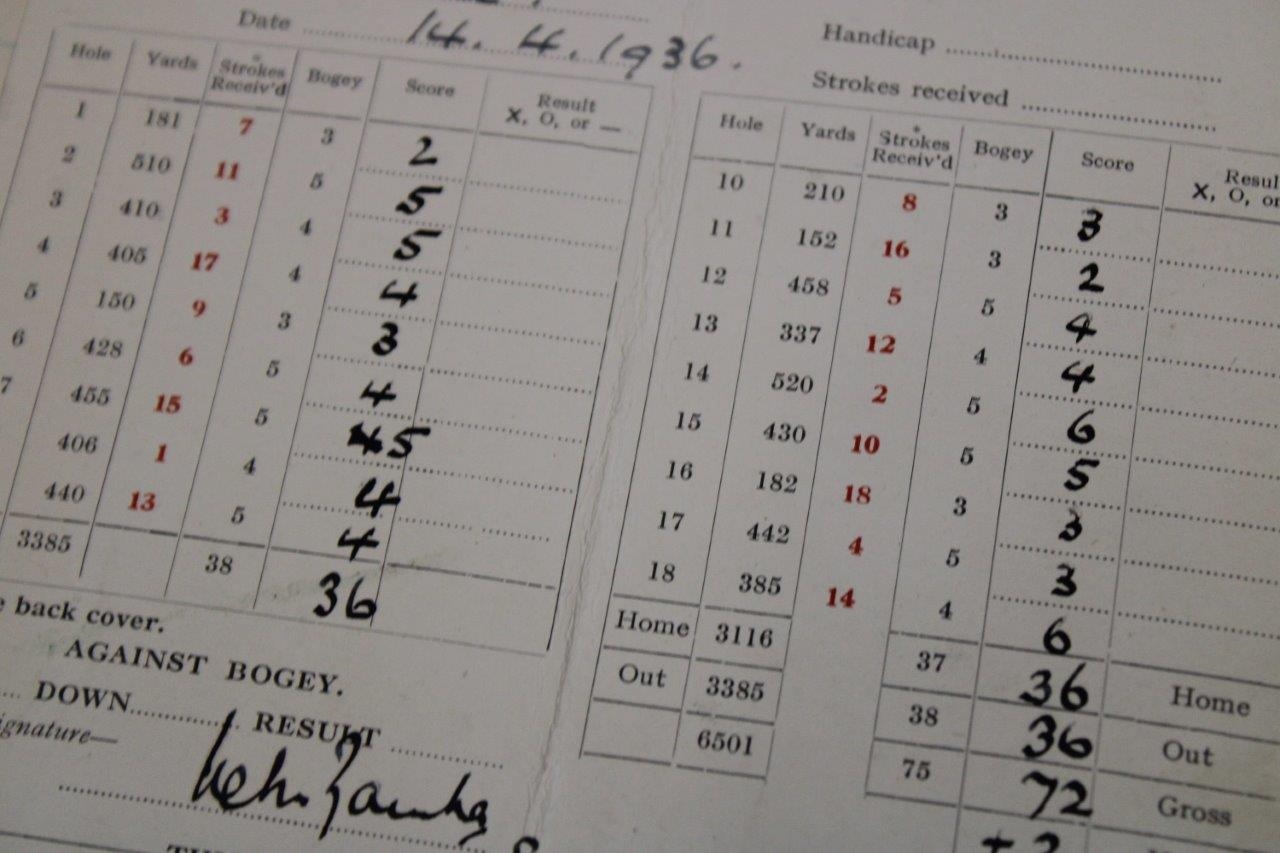 Date 14.4.1936.
Hole Yards * Strokes Receiv'd Bogey Score Result X, O, or —
1 181 7 3 2
2 510 11 5 5
3 410 3 4 5
4 405 17 4 4
5 150 9 3 3
6 428 6 5 4
7 455 15 5 5
406 1 4 4
440 13 5 4
3385 38 36
back cover.
AGAINST BOGEY.
DOWN RESULT
ignature—
Handicap
Strokes received
Hole Yards * Strokes Receiv'd Bogey Score Resul X, O, or
10 210 8 3 3
11 152 16 3 2
12 458 5 5 4
13 337 12 4 4
14 520 2 5 6
15 430 10 5 5
16 182 18 3 3
17 442 4 5 3
18 385 14 4 6
Home 3116 37 36 Home
Out 3385 38 36 Out
6501 75 72 Gross